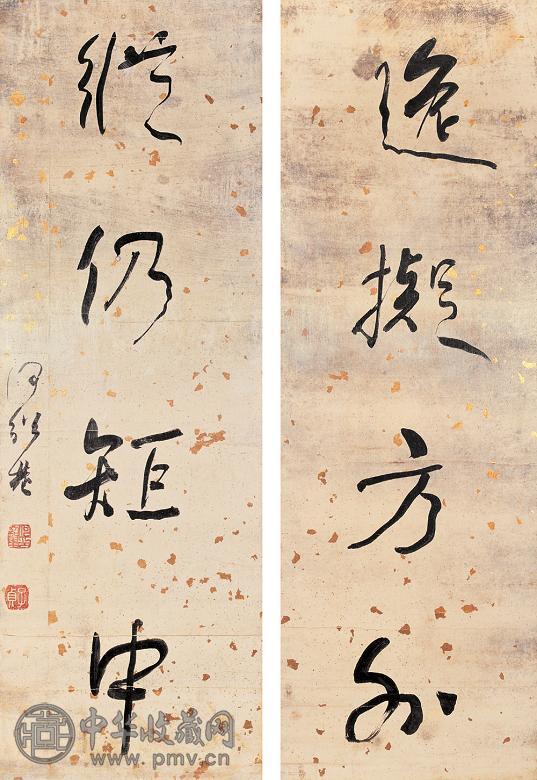 逸擬方外
縱仍矩中
何紹基
子貞
中华收藏网
www.pmv.cn